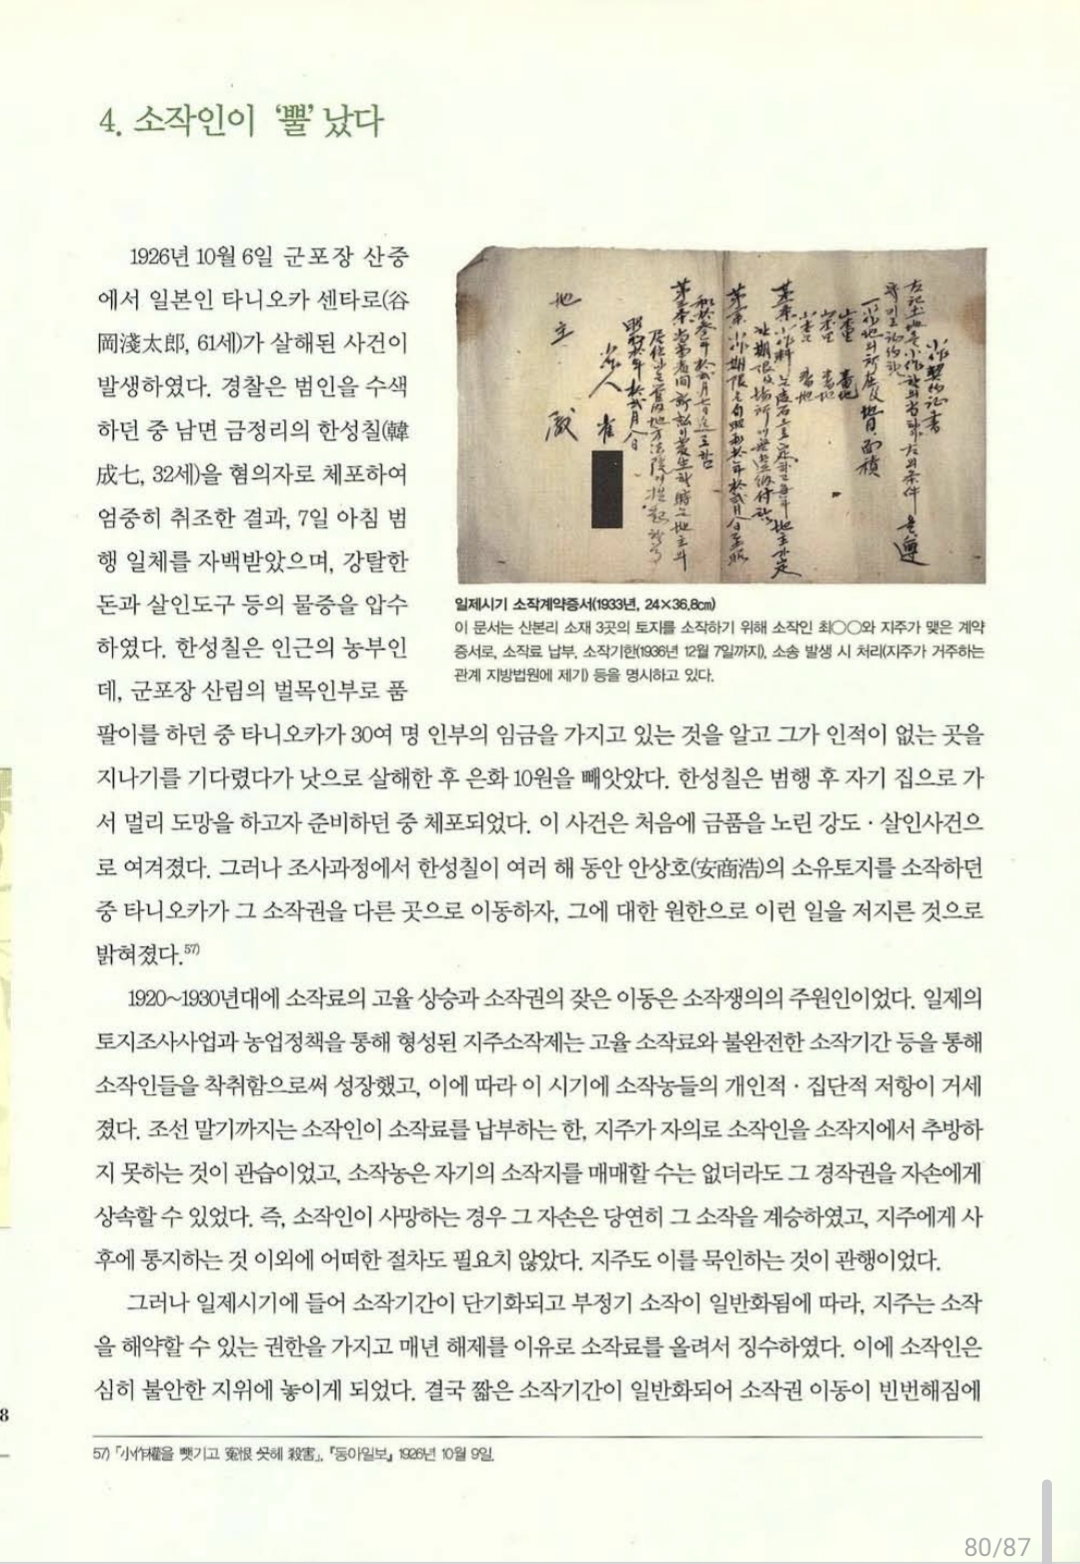 4. 소작인이 '뿔' 났다
1926년 10월 6일 군포장 산중
에서 일본인 타니오카 센타로(谷
岡淺太郎, 61세)가 살해된 사건이
발생하였다. 경찰은 범인을 수색
하던 중 남면 금정리의 한성칠(韓
成七, 32세)을 혐의자로 체포하여
엄중히 취조한 결과, 7일 아침 범
행 일체를 자백받았으며, 강탈한
돈과 살인도구 등의 물증을 압수
하였다. 한성칠은 인근의 농부인
데, 군포장 산림의 벌목인부로 품
小作契約証書
地主 殿
일제시기 소작계약증서(1933년, 24×36.8cm)
이 문서는 산본리 소재 3곳의 토지를 소작하기 위해 소작인 최○○와 지주가 맺은 계약
증서로, 소작료 납부, 소작기한(1936년 12월 7일까지), 소송 발생 시 처리(지주가 거주하는
관계 지방법원에 제기) 등을 명시하고 있다.
팔이를 하던 중 타니오카가 30여 명 인부의 임금을 가지고 있는 것을 알고 그가 인적이 없는 곳을
지나기를 기다렸다가 낫으로 살해한 후 은화 10원을 빼앗았다. 한성칠은 범행 후 자기 집으로 가
서 멀리 도망을 하고자 준비하던 중 체포되었다. 이 사건은 처음에 금품을 노린 강도·살인사건으
로 여겨졌다. 그러나 조사과정에서 한성칠이 여러 해 동안 안상호(安商浩)의 소유토지를 소작하던
중 타니오카가 그 소작권을 다른 곳으로 이동하자, 그에 대한 원한으로 이런 일을 저지른 것으로
밝혀졌다.57)
1920~1930년대에 소작료의 고율 상승과 소작권의 잦은 이동은 소작쟁의의 주원인이었다. 일제의
토지조사사업과 농업정책을 통해 형성된 지주소작제는 고율 소작료와 불완전한 소작기간 등을 통해
소작인들을 착취함으로써 성장했고, 이에 따라 이 시기에 소작농들의 개인적·집단적 저항이 거세
졌다. 조선 말기까지는 소작인이 소작료를 납부하는 한, 지주가 자의로 소작인을 소작지에서 추방하
지 못하는 것이 관습이었고, 소작농은 자기의 소작지를 매매할 수는 없더라도 그 경작권을 자손에게
상속할 수 있었다. 즉, 소작인이 사망하는 경우 그 자손은 당연히 그 소작을 계승하였고, 지주에게 사
후에 통지하는 것 이외에 어떠한 절차도 필요치 않았다. 지주도 이를 묵인하는 것이 관행이었다.
그러나 일제시기에 들어 소작기간이 단기화되고 부정기 소작이 일반화됨에 따라, 지주는 소작
을 해약할 수 있는 권한을 가지고 매년 해제를 이유로 소작료를 올려서 징수하였다. 이에 소작인은
심히 불안한 지위에 놓이게 되었다. 결국 짧은 소작기간이 일반화되어 소작권 이동이 빈번해짐에
8
57) 「小作權을 뺏기고 寃恨 끗헤 殺害」, 『동아일보』 1926년 10월 9일.
80/87